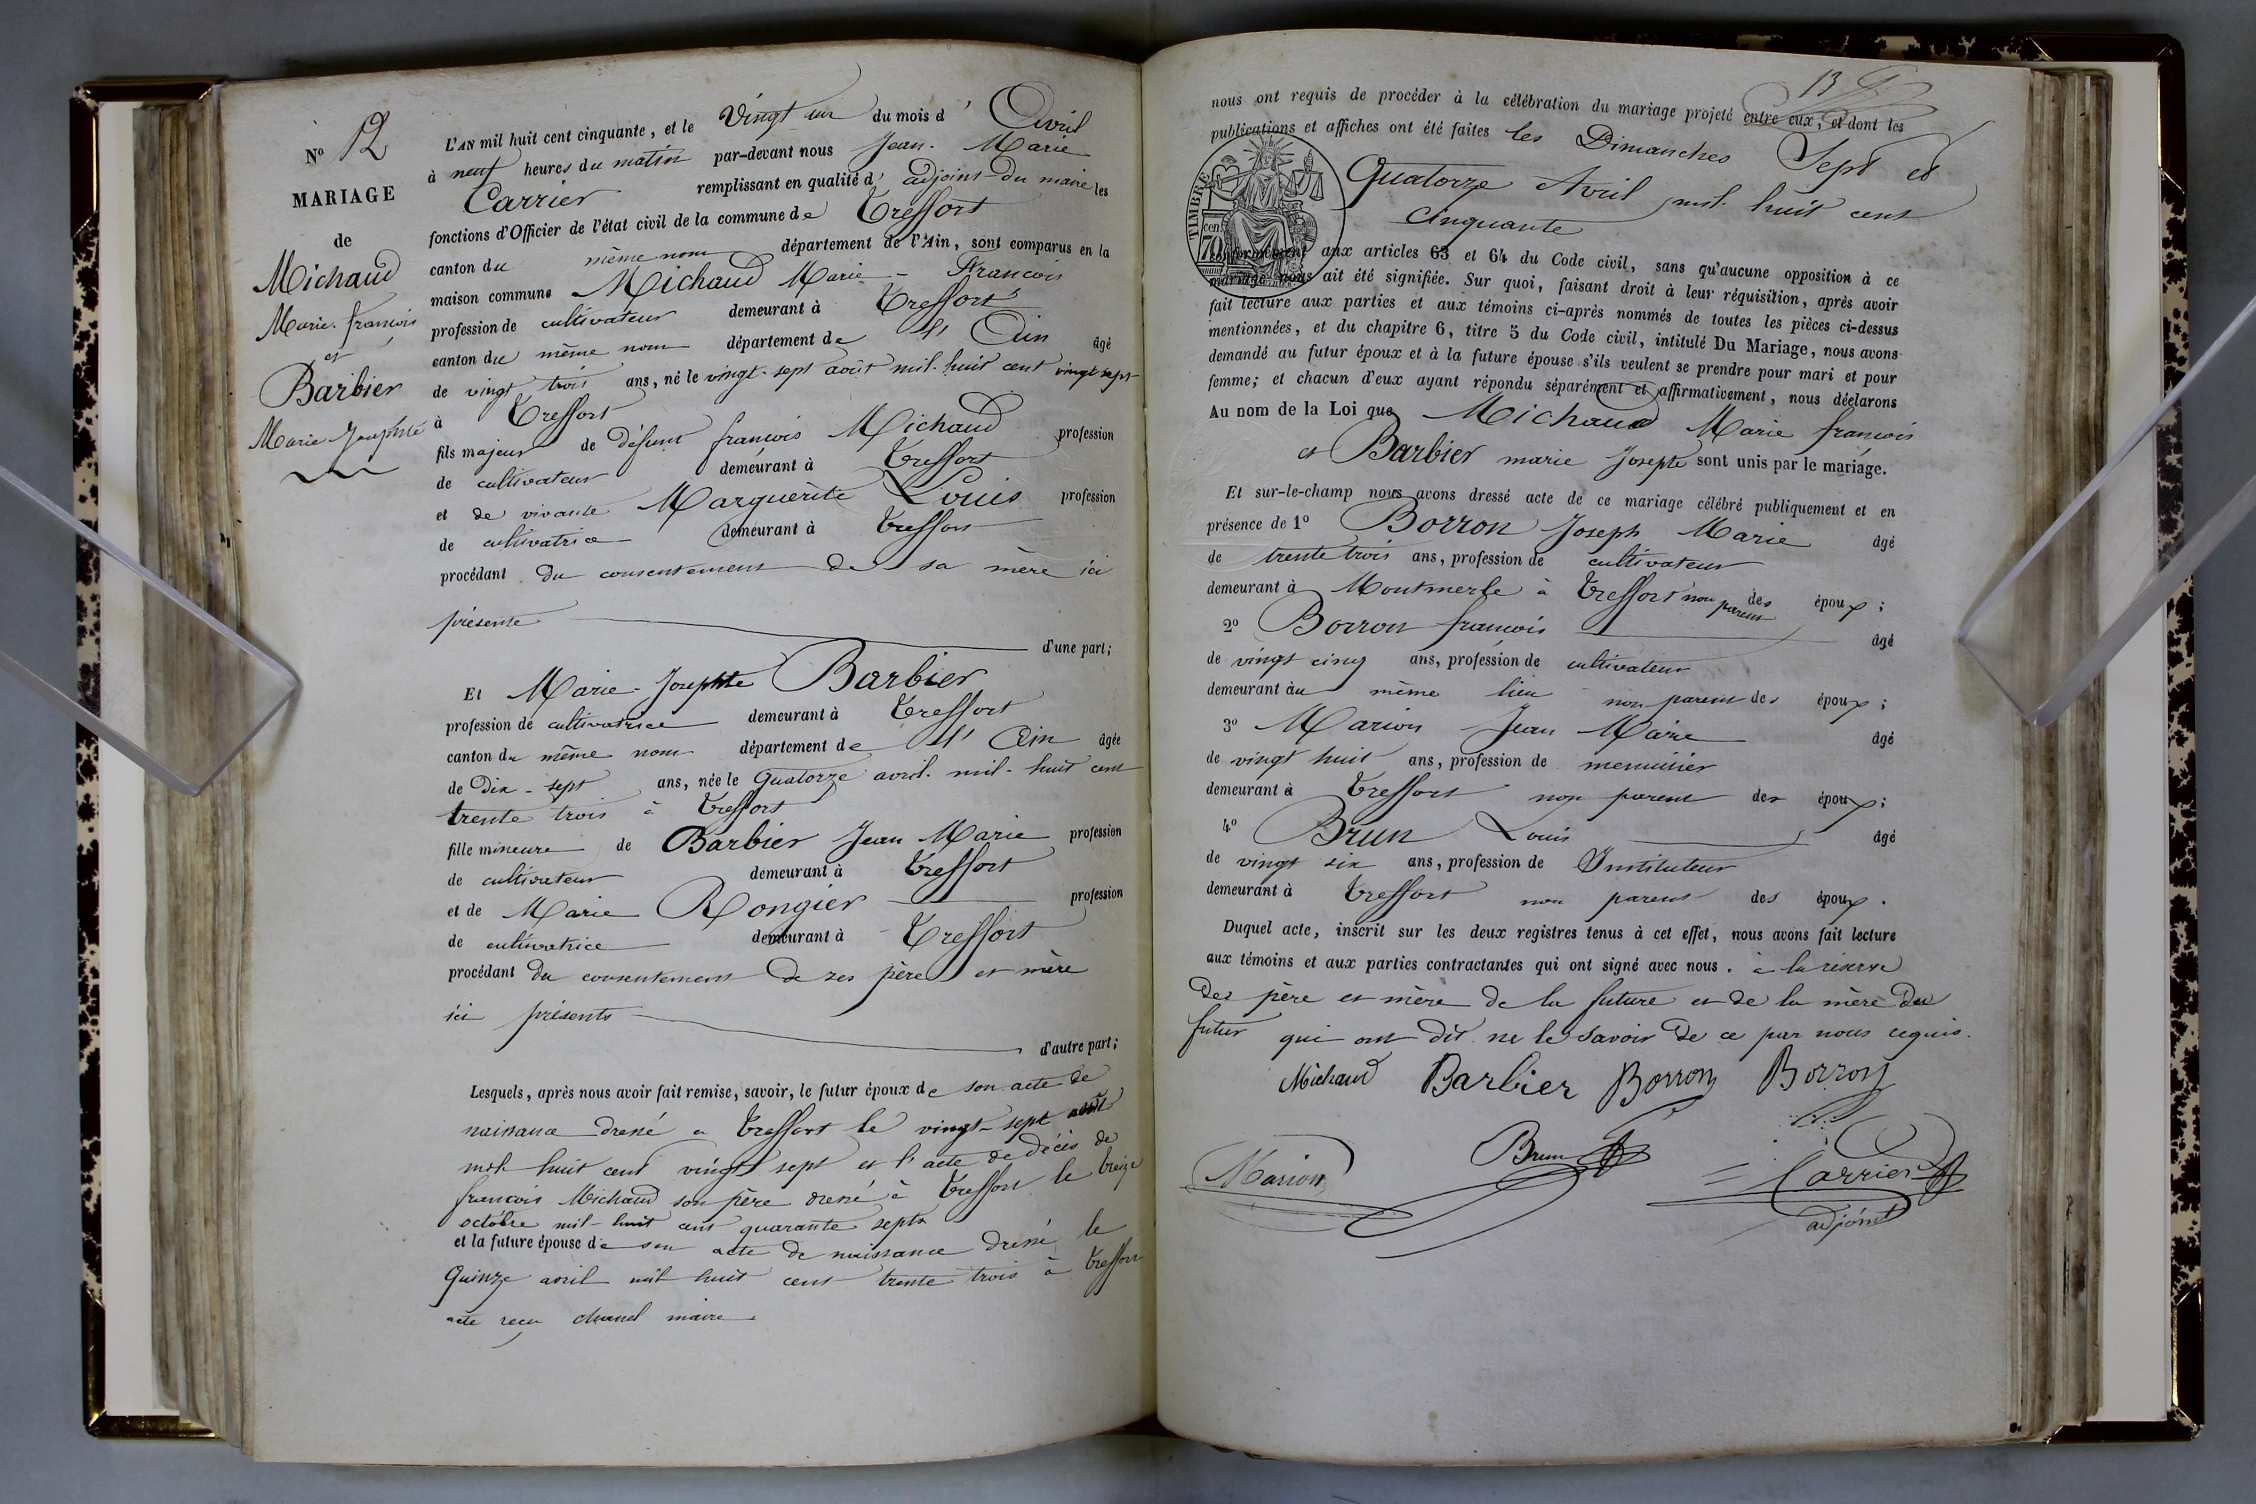 Nº 12
MARIAGE
de
Michaud
Marie-françois
et
Barbier
Marie Josephte
L'AN mil huit cent cinquante, et le Vingt un du mois d' Avril
à neuf heures du matin par-devant nous Jean-Marie
Carrier remplissant en qualité d' adjoint du maire les
fonctions d'Officier de l'état civil de la commune de Treffort
canton du même nom département de l'Ain, sont comparus en la
maison commune Michaud Marie-François
profession de cultivateur demeurant à Treffort
canton du même nom département de l'Ain âgé
de vingt trois ans, né le vingt-sept août mil-huit cent vingt sept
à Treffort
fils majeur de défunt françois Michaud profession
de cultivateur demeurant à Treffort
et de vivante Marguerite Louis profession
de cultivatrice demeurant à Treffort
procédant du consentement de sa mère ici
présente
d'une part;
Et Marie-Josephte Barbier
profession de cultivatrice demeurant à Treffort
canton du même nom département de l'Ain âgée
de Dix-sept ans, née le Quatorze avril-mil-huit cent
trente trois à Treffort
fille mineure de Barbier Jean Marie profession
de cultivateur demeurant à Treffort
et de Marie Rongier profession
de cultivatrice demeurant à Treffort
procédant du consentement de ses père et mère
ici présents
d'autre part;
Lesquels, après nous avoir fait remise, savoir, le futur époux de son acte de
naissance dressé à Treffort le vingt-sept août
mil huit cent vingt sept et l'acte de décès de
françois Michaud son père dressé à Treffort le treize
octobre mil-huit cent quarante sept
et la future épouse de son acte de naissance dressé le
Quinze avril mil huit cent trente trois à Treffort
acte reçu maire
13
nous ont requis de procéder à la célébration du mariage projeté entre eux, et dont les
publications et affiches ont été faites les Dimanches Sept et
Quatorze Avril mil-huit cent
cinquante
TIMBRE
70 cen
conformément aux articles 63 et 64 du Code civil, sans qu'aucune opposition à ce
mariage nous ait été signifiée. Sur quoi, faisant droit à leur réquisition, après avoir
fait lecture aux parties et aux témoins ci-après nommés de toutes les pièces ci-dessus
mentionnées, et du chapitre 6, titre 5 du Code civil, intitulé Du Mariage, nous avons
demandé au futur époux et à la future épouse s'ils veulent se prendre pour mari et pour
femme; et chacun d'eux ayant répondu séparément et affirmativement, nous déclarons
Au nom de la Loi que Michaud Marie françois
et Barbier marie Josephte sont unis par le mariage.
Et sur-le-champ nous avons dressé acte de ce mariage célébré publiquement et en
présence de 1º Borron Joseph Marie âgé
de trente trois ans, profession de cultivateur
demeurant à Montmerle à Treffort non parent des époux;
2º Borron françois âgé
de vingt cinq ans, profession de cultivateur
demeurant au même lieu non parent des époux;
3º Marion Jean Marie âgé
de vingt huit ans, profession de menuisier
demeurant à Treffort non parent des époux;
4º Brun Louis âgé
de vingt six ans, profession de Instituteur
demeurant à Treffort non parent des époux.
Duquel acte, inscrit sur les deux registres tenus à cet effet, nous avons fait lecture
aux témoins et aux parties contractantes qui ont signé avec nous. à la réserve
des père et mère de la future et de la mère du
futur qui ont dit ne le savoir de ce par nous requis.
Michaud Barbier Borron Borron
Marion Brun Carrier
adjoint